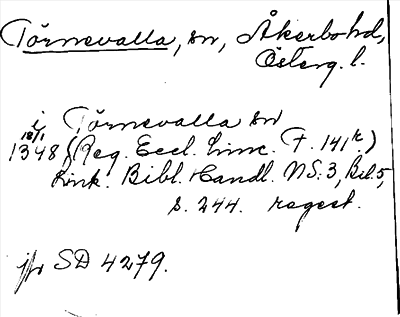 Törnevalla, sn, Åkerbo hd,
Österg. l.
i Törnevalla sn
18/1
1348 (Reg. Eccl. Linc. F. 141k.)
Link. Bibl. Handl. NS:3, Bil. 5,
s. 244. regest.
jfr SD 4279.